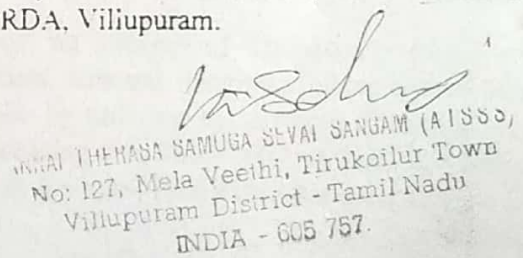 RDA, Villupuram.
THERASA SAMUGA SEVAI SANGAM (ATSSS)
No: 127, Mela Veethi, Tirukoilur Town
Villupuram District - Tamil Nadu
INDIA - 605 757.